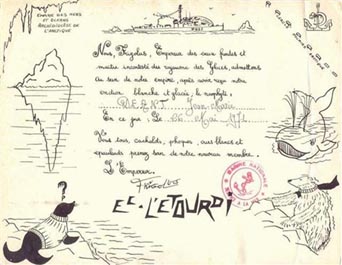 EMPIRE DES MERS
ET OCEANS
DE
L'ARCTIQUE
Nous, Frigolus, Empereur des eaux froides et
maitre incontesté des royaumes des Glaces, admettons
Au sein de notre empire, après avoir reçu notre
onction blanche et glacée, le néophyte,
Jean
En ce jour, Le 26 Mai 1971
Vous tous, cachalots, phoques, ours blancs et
prenez soin de notre nouveau membre.
L'Empereur.
FRIGOLUS
MARINE NATIONALE
E.E. L'ETOURDI